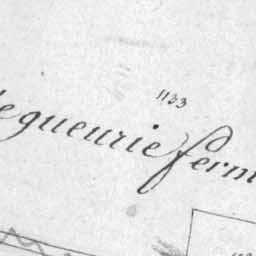 1133
egueurie ferm